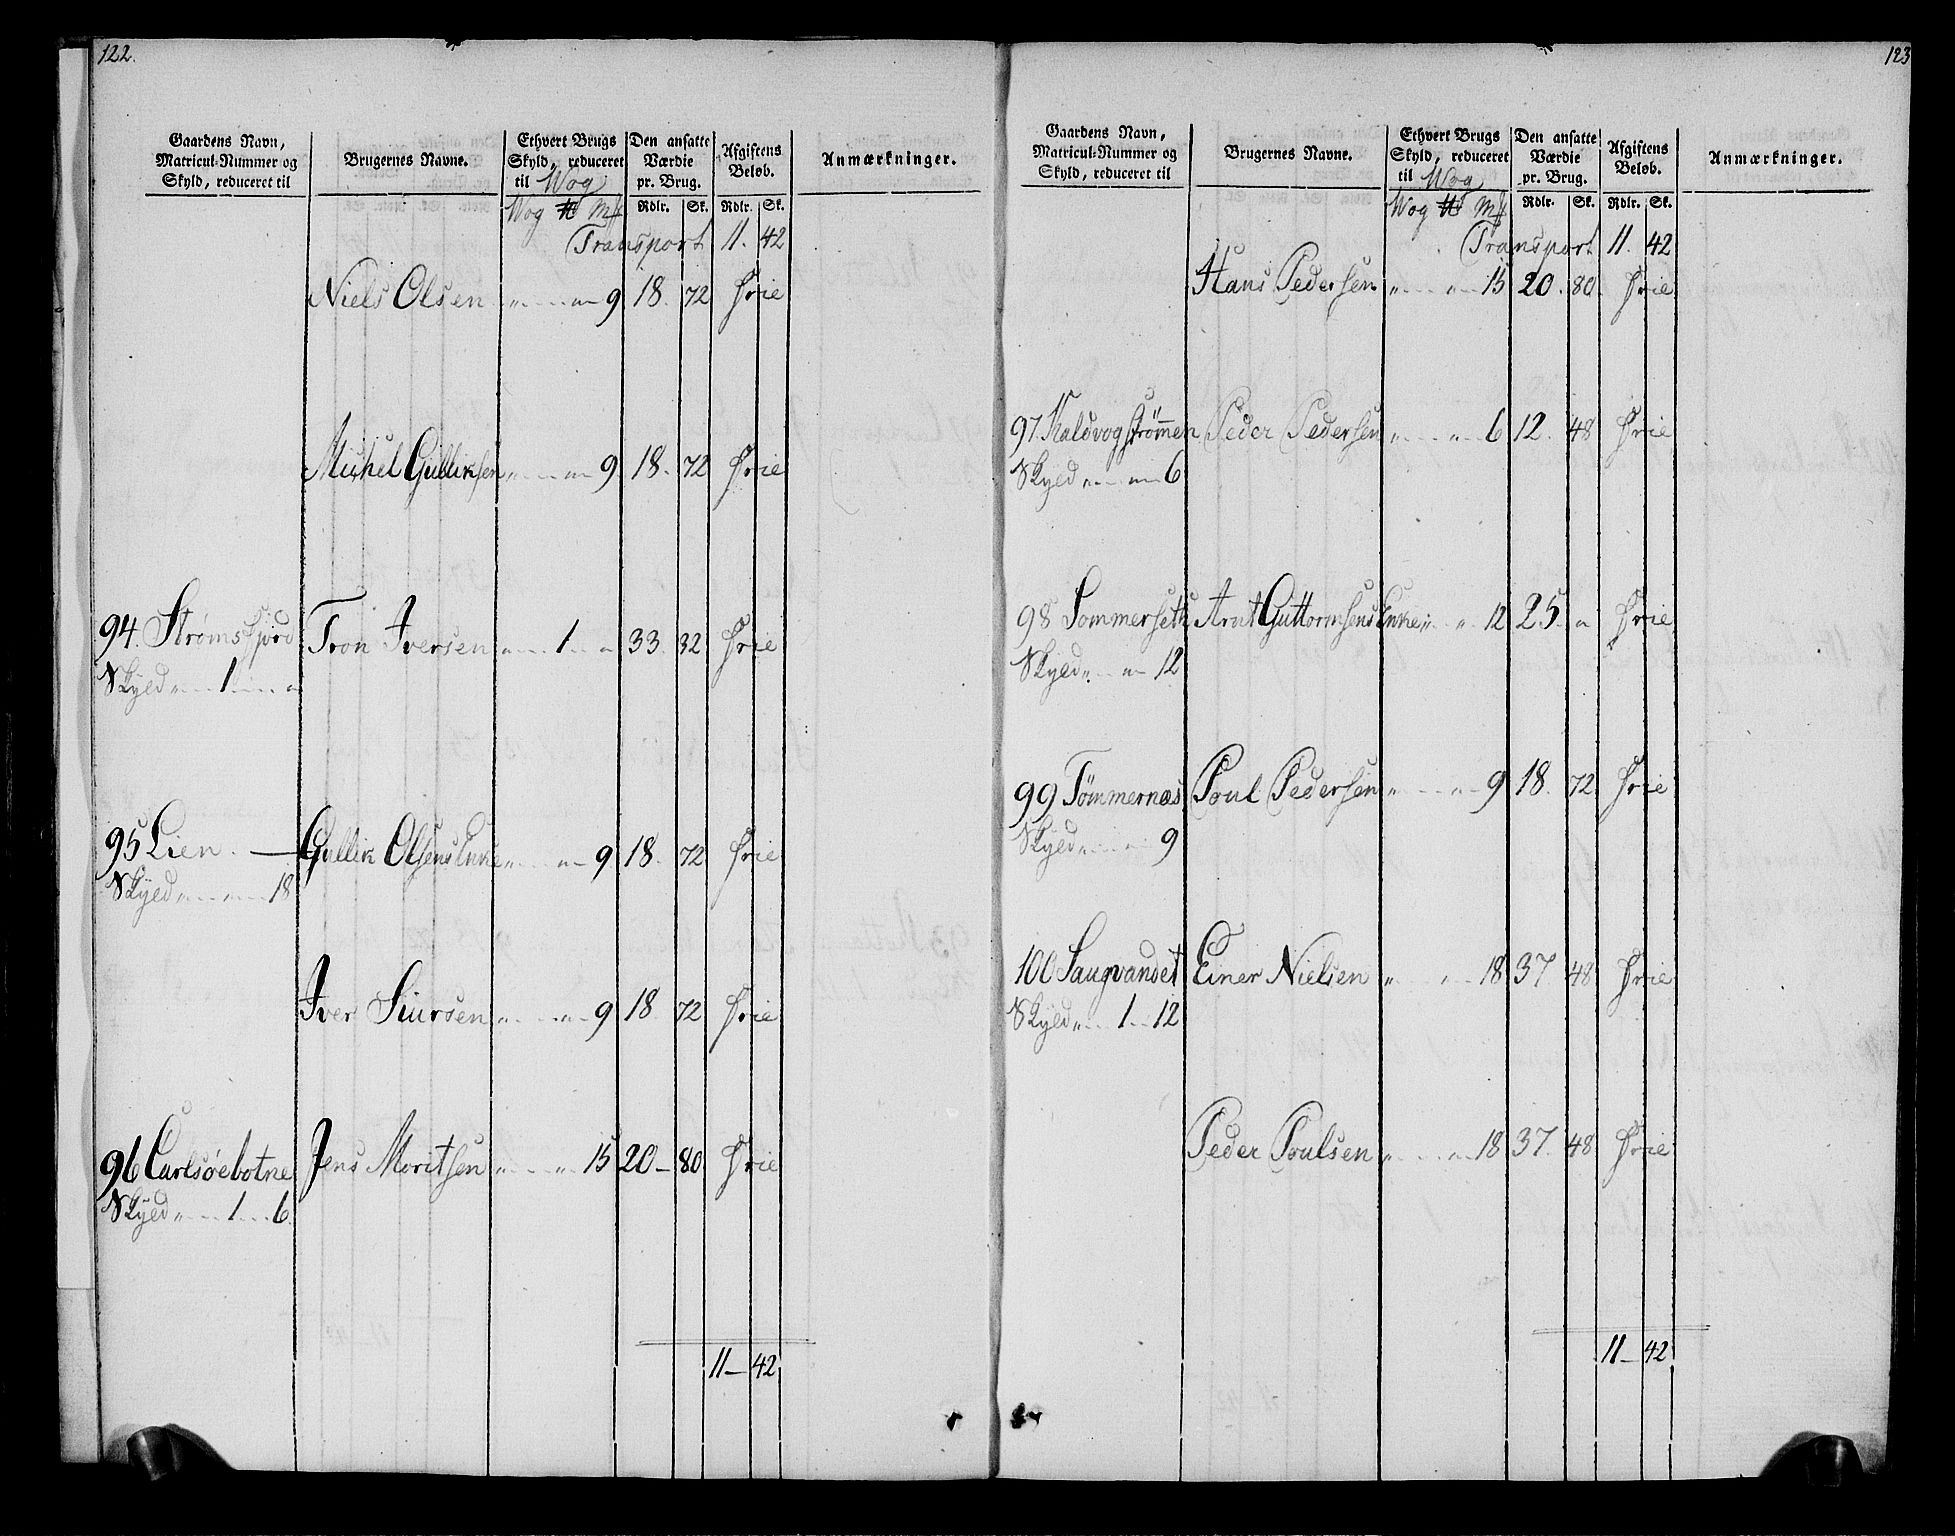 122.
Gaardens Navn, Matricul-Nummer og Skyld, reduceret til
Brugernes Navne.
Ethvert Brugs Skyld, reduceret til Wog
Den ansatte Værdie pr. Brug.
Afgiftens Beløb.
Anmærkninger.
Wog ℔ Mk Rdlr. Sk. Rdlr. Sk.
Transport 11. 42
Niels Olsen " " 9 18. 72 Frie
Michel Gulliksen " " 9. 18. 72 Frie
94. Strømsfjord Tron Iversen " 1 " 33. 32 Frie
Skyld " 1 "
95 Lien. — Gullik Olsens Enke " " 9 18. 72 Frie
Skyld " " 18
Iver Siursen " " 9 18 72 Frie
96 Carlsøebotne Jens Moritsen " " 15 20 — 80 Frie
Skyld " 1 6.
11 — 42
123
Gaardens Navn, Matricul-Nummer og Skyld, reduceret til
Brugernes Navne.
Ethvert Brugs Skyld, reduceret til Wog
Den ansatte Værdie pr. Brug.
Afgiftens Beløb.
Anmærkninger.
Wog ℔ Mk Rdlr. Sk. Rdlr. Sk.
Transport 11. 42
Hans Pedersen " " 15 20. 80. Frie
97. Kaldvogstrømmen Peder Pedersen " " 6 12. 48 Frie
Skyld " " 6
98 Sommerseth Arnt Guttormsens Enke " " 12 25. " Frie
Skyld " " 12
99 Tømmernæs Poul Pedersen " " 9 18. 72 Frie
Skyld " " 9
100 Saugvandet Einer Nielsen " " 18 37 48 Frie
Skyld " 1 12
Peder Poulsen " " 18 37. 48 Frie
11 — 42